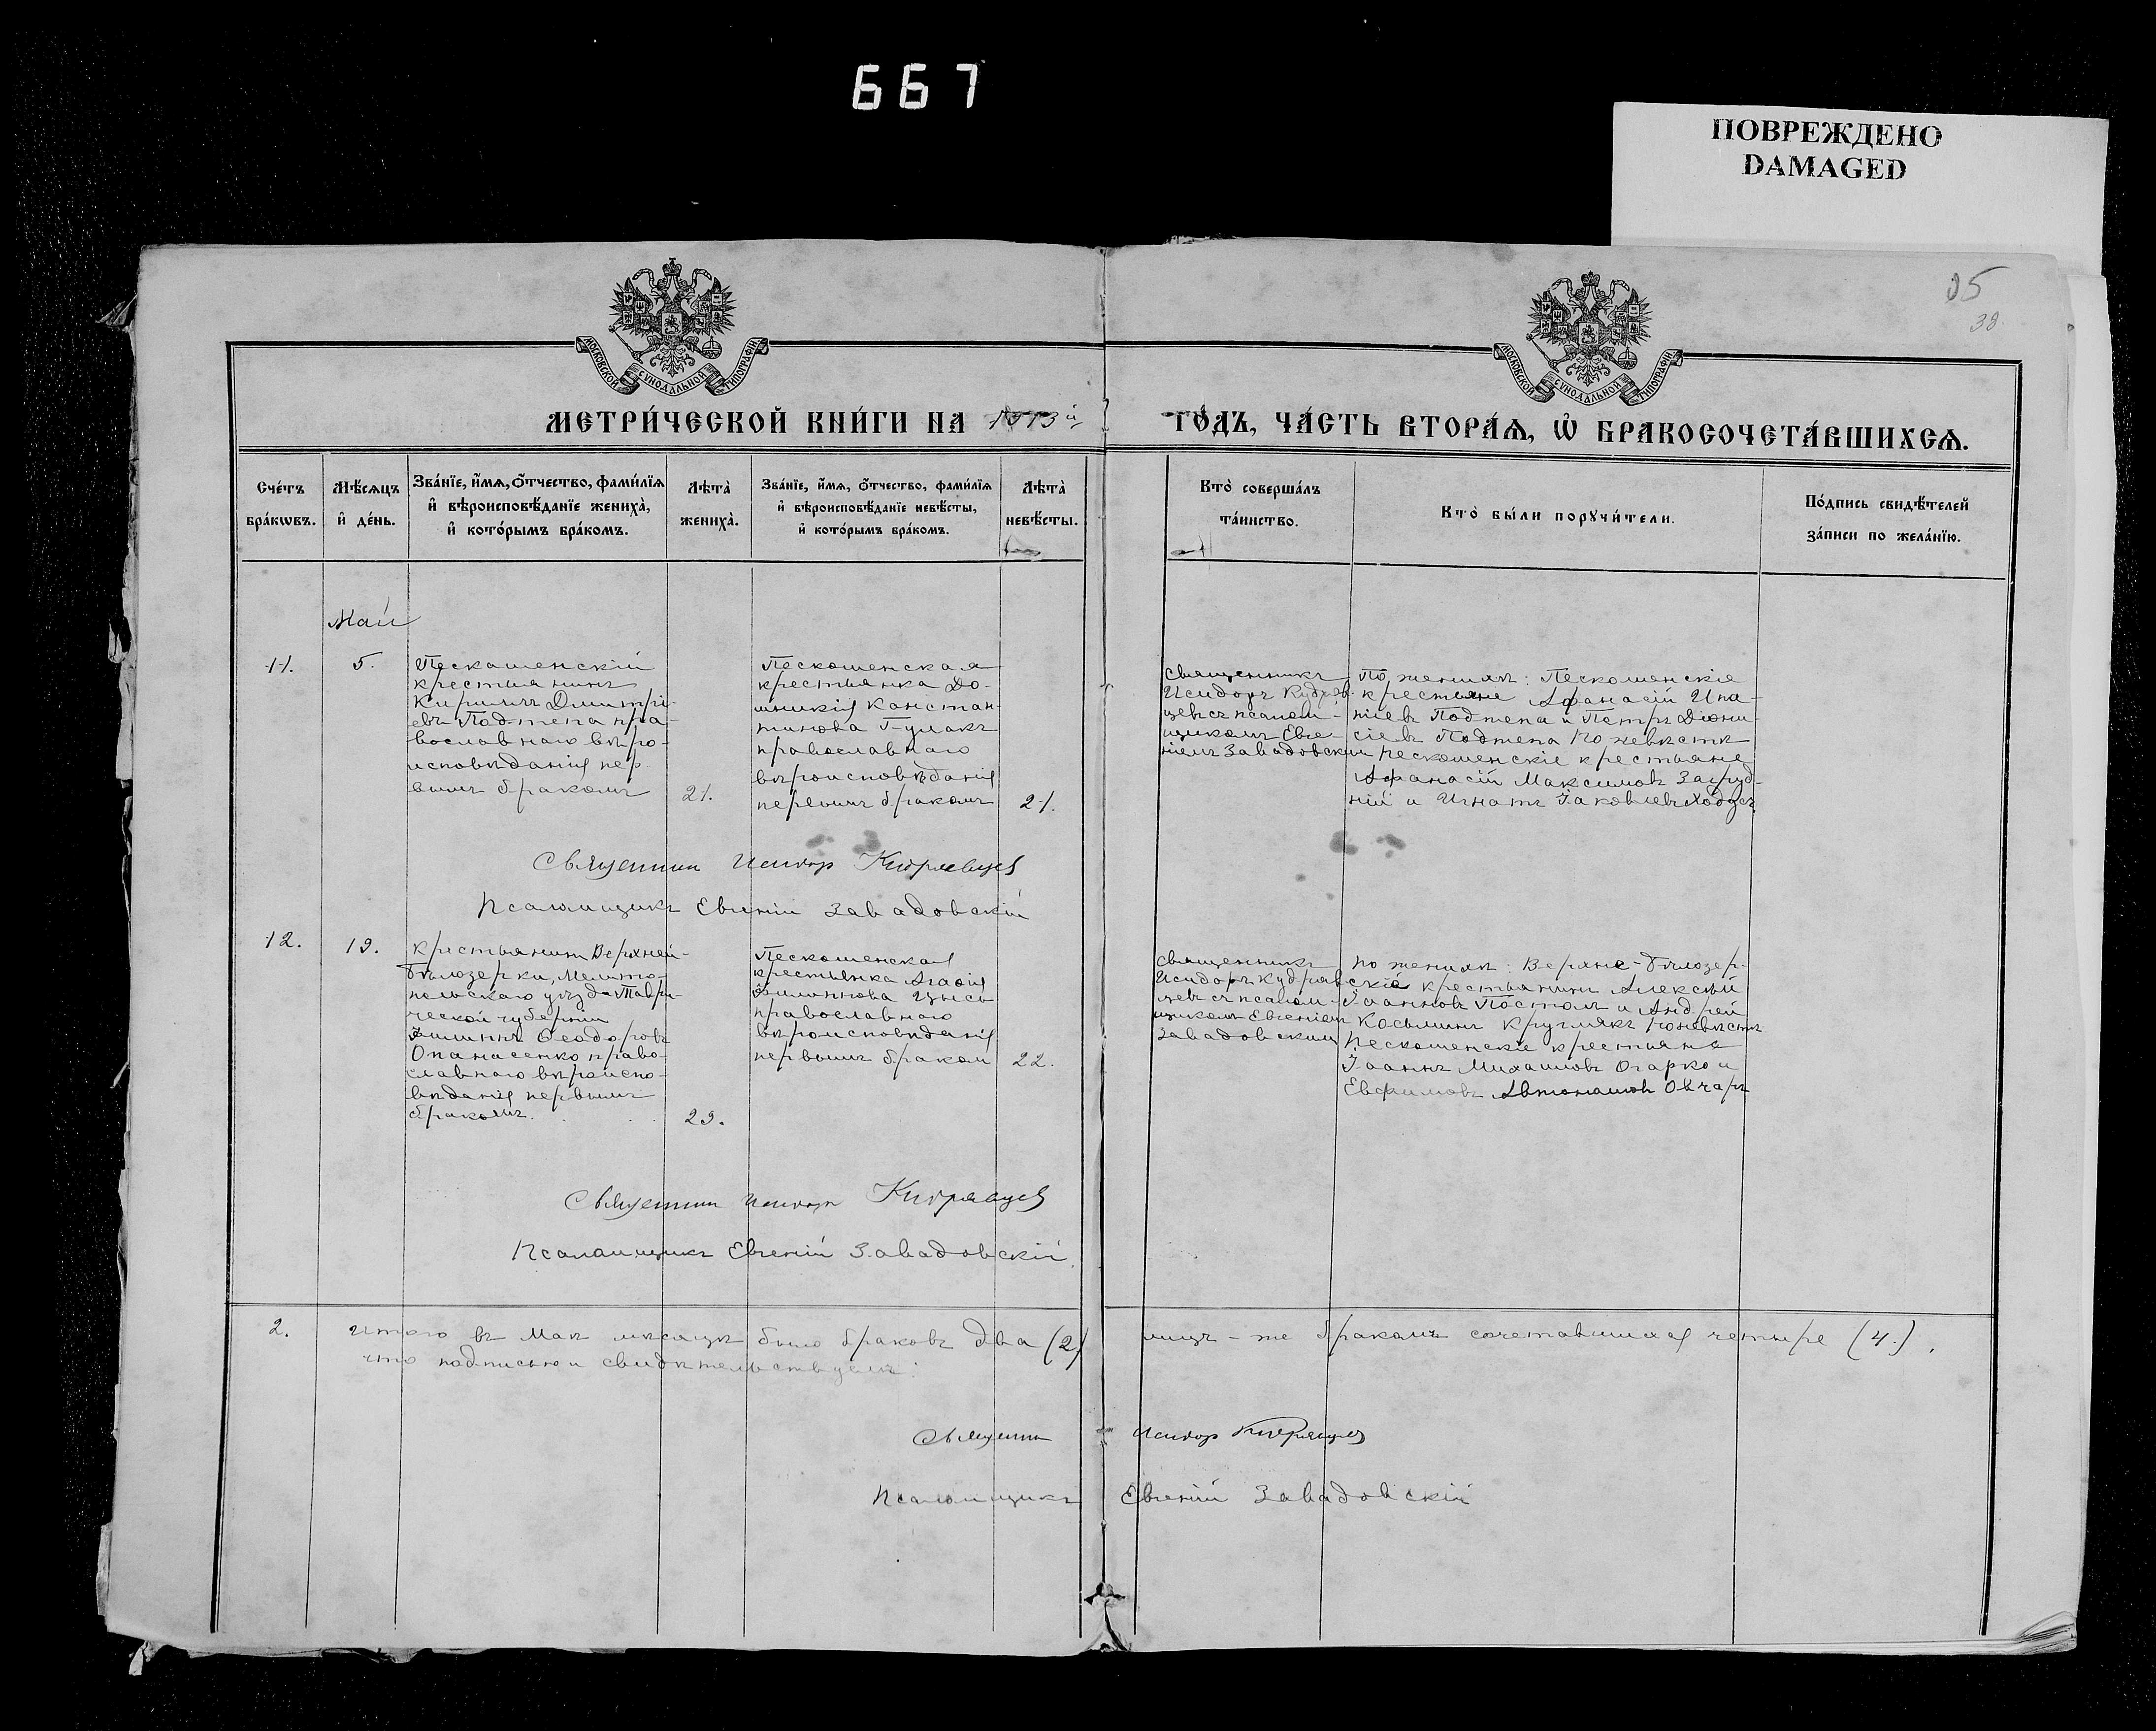 667
ПОВРЕЖДЕНО
DAMAGED
35
38.
МОСКОВСКОЙ СѴНОДАЛЬНОЙ ТИПОГРАФІИ
МОСКОВСКОЙ СѴНОДАЛЬНОЙ ТИПОГРАФІИ
МЕТРИ́ЧЕСКОЙ КНИ́ГИ НА 1913й
ГО́ДЪ, ЧА́СТЬ ВТОРА́Ѧ, Ѡ҆ БРАКОСОЧЕТА́ВШИХСѦ.
Сче́тъ бра́кѡвъ.
Мѣ́сѧцъ и҆ де́нь.
Зва́нїе, и҆́мѧ, ѻ҆́тчество, фами́лїѧ
и҆ вѣроисповѣ́данїе жениха̀,
и҆ кото́рымъ бра́комъ.
Лѣта̀ жениха̀.
Зва́нїе, и҆́мѧ, ѻ҆́тчество, фами́лїѧ
и҆ вѣроисповѣ́данїе невѣ́сты,
и҆ кото́рымъ бра́комъ.
Лѣта̀ невѣ́сты.
Кто̀ соверша́лъ
та́инство.
Кто̀ бы́ли порꙋчи́тели.
По́дпись свидѣ́телей
за́писи по жела́нїю.
Май
11.
5.
Пескошенскій
крестьянинъ
Кириллъ Димитрі-
евъ Подтепа пра-
вославнаго вѣро-
исповѣданія пер
вымъ бракомъ
21.
Пескошенская
крестьянка До-
мникія Констан-
тинова Гулакъ
православнаго
вѣроисповѣданія
первымъ бракомъ
21.
священникъ
Исидоръ Кудряв-
цевъ съ псалом-
щикомъ Евге-
ніемъ Завадовскимъ
По женихѣ: Пескошенскіе
крестьяне Афанасій Ипа-
тіевъ Подтепа и Петръ Діони-
сіевъ Подтепа По невѣстѣ
пескошенскіе крестьяне
Афанасій Максимовъ Загруд-
ній и Игнатъ Іаковлевъ Ходусъ.
Священник Исидор Кудрявцев
Псаломщикъ Евгеній Завадовскій
12.
19.
крестьянинъ Верхней-
Бѣлозерки, Мелито-
польскаго уѣзда Таври-
ческой губерніи
Филиппъ Ѳеодоровъ
Опанасенко право-
славнаго вѣроиспо-
вѣданія первымъ
бракомъ.
29.
Пескошенская
крестьянка Агаѳія
Филиппова Цысь
православнаго
вѣроисповѣданія
первымъ браком
22.
священникъ
Исидоръ Кудряв
цевъ съ псалом-
щикомъ Евгеніем
Завадовским
по женихѣ: Верхне-Бѣлозер-
скіе крестьянинъ Алексѣй
Іоанновъ Постолъ и Андрей
Косьминъ Круглякъ по невѣстѣ
Пескошенскіе крестьяне
Іоаннъ Михаиловъ Огарко и
Евфимовъ Автономов Овчаръ
Священник Исидор Кудрявцев
Псаломщикъ Евгеній Завадовскій
2.
Итого въ Маѣ мѣсяцѣ было браковъ два (2)
лицъ-же бракомъ сочетавшихся четыре (4).
что подписью и свидѣтельствуемъ:
Священн Исидор Кудрявцев
Псаломщикъ Евгеній Завадовскій